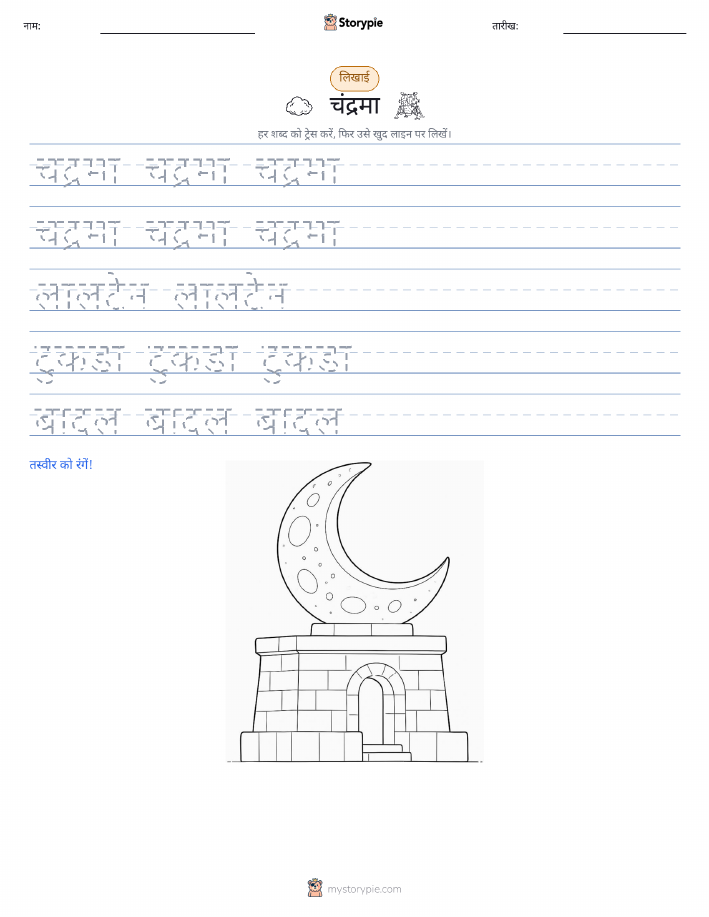 नाम:
Storypie
तारीख:
लिखाई
चंद्रमा
हर शब्द को ट्रेस करें, फिर उसे खुद लाइन पर लिखें।
चद्रमा चद्रमा चद्रमा
चद्रमा चद्रमा चद्रमा
लालटेन लालटेन
टुकडा टुकडा टुकडा
बादल बादल बादल
तस्वीर को रंगें!
mystorypie.com